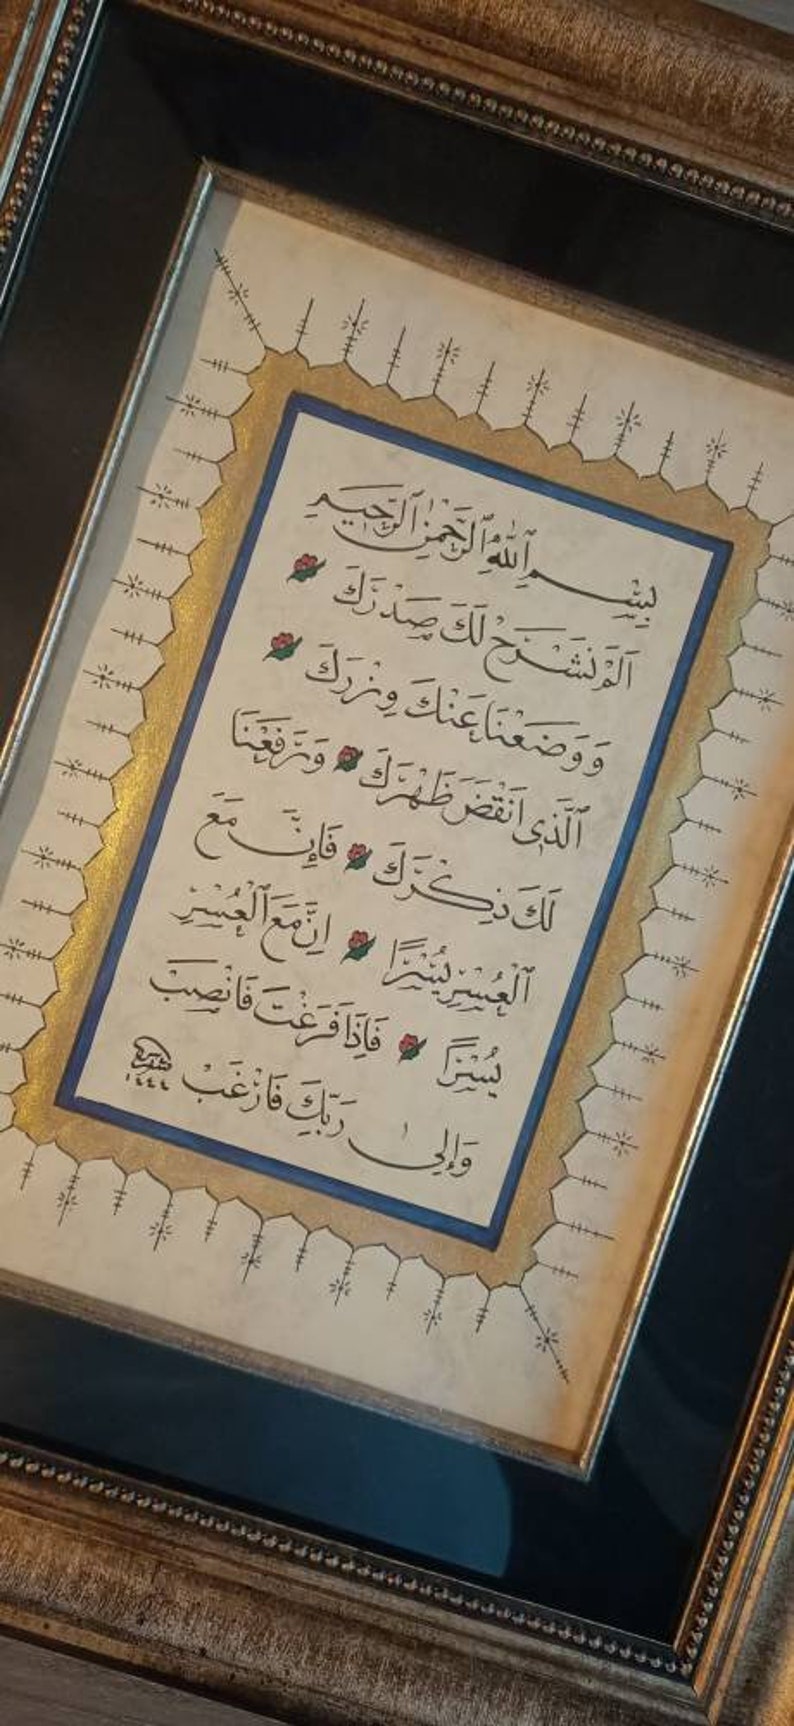 بِسْمِ ٱللّٰهِ ٱلرَّحْمٰنِ ٱلرَّحِيمِ
اَلَمْ نَشْرَحْ لَكَ صَدْرَكَ
وَوَضَعْنَا عَنْكَ وِزْرَكَ
ٱلَّذِى اَنْقَضَ ظَهْرَكَ وَرَفَعْنَا
لَكَ ذِكْرَكَ فَاِنَّ مَعَ
ٱلْعُسْرِ يُسْرًا اِنَّ مَعَ ٱلْعُسْرِ
يُسْرًا فَاِذَا فَرَغْتَ فَانْصَبْ
وَاِلٰى رَبِّكَ فَارْغَبْ
١٤٤٤